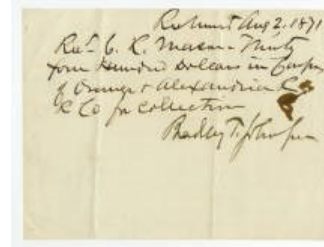 Richmond Aug 2. 1871
Rec'd C. R. Mason Thirty
four hundred dollars in Coupons
of Orange & Alexandria R
R Co for collection
Bradley T. Johnson